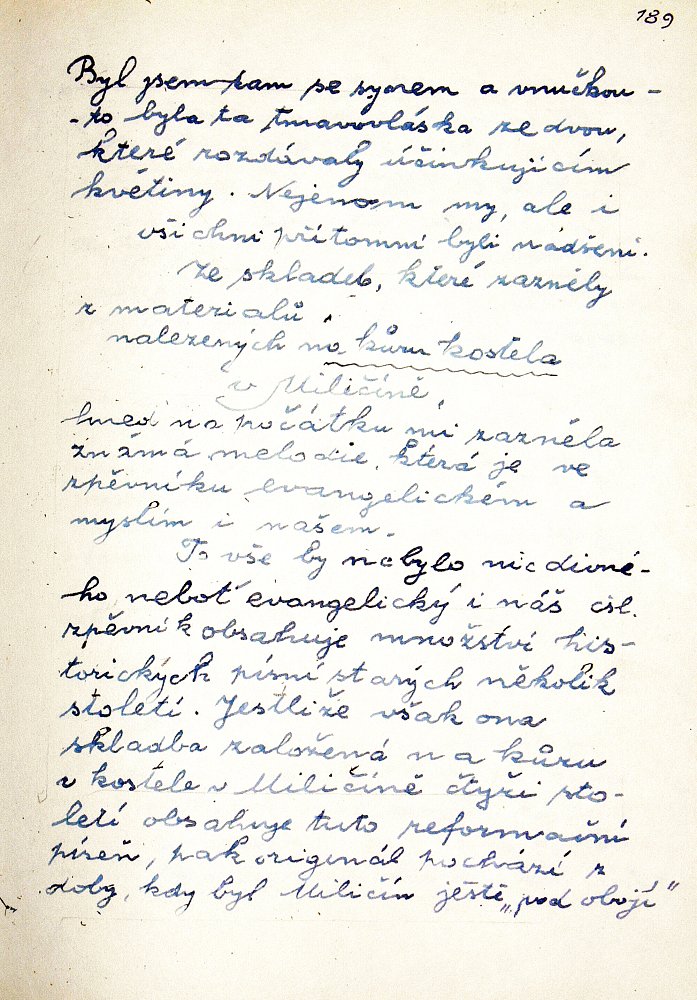 189
Byl jsem tam se synem a vnučkou -
- to byla ta tmavovláska ze dvou,
které rozdávaly účinkujícím
květiny. Nejenom my, ale i
všichni přítomní byli nadšeni.
Ze skladeb, které zazněly
z materialů
nalezených na kůru kostela
v Miličíně,
hned na počátku mi zazněla
známá melodie, která je ve
zpěvníku evangelickém a
myslím i našem.
To vše by nebylo nic divné-
ho, neboť evangelický i náš čsl.
zpěvník obsahuje množství his-
torických písní starých několik
století. Jestliže však ona
skladba založená na kůru
v kostele v Miličíně čtyři sto-
letí obsahuje tuto reformační
píseň, pak originál pochází z
doby, kdy byl Miličín ještě „pod obojí"